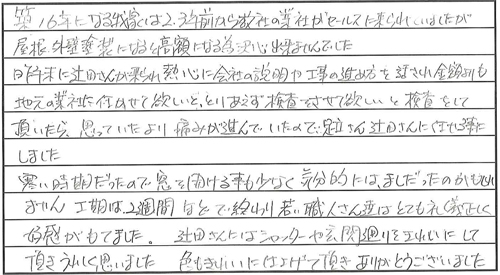 築16年になる我家は2、3年前から数社の業社がセールスに来られていましたが
屋根、外壁塗装になると高額になる為決心出来ませんでした
昨年末に辻田さんが来られ熱心に会社の説明や工事の進め方を話され金額よりも
地元の業社に任せて欲しいと、とりあえず検査させて欲しいと検査をして
頂いたら、思っていたより痛みが進んでいたので足立さん辻田さんに任せる事に
しました
寒い時期だったので窓を開ける事も少なく気分的にはましだったのかもしれ
ません 工期は、2週間ほどで終わり若い職人さん達はとても礼儀正しく
好感がもてました。 辻田さんにはシャッターや玄関廻りをきれいにして
頂きうれしく思いました 色もきれいに仕上げて頂きありがとうございました